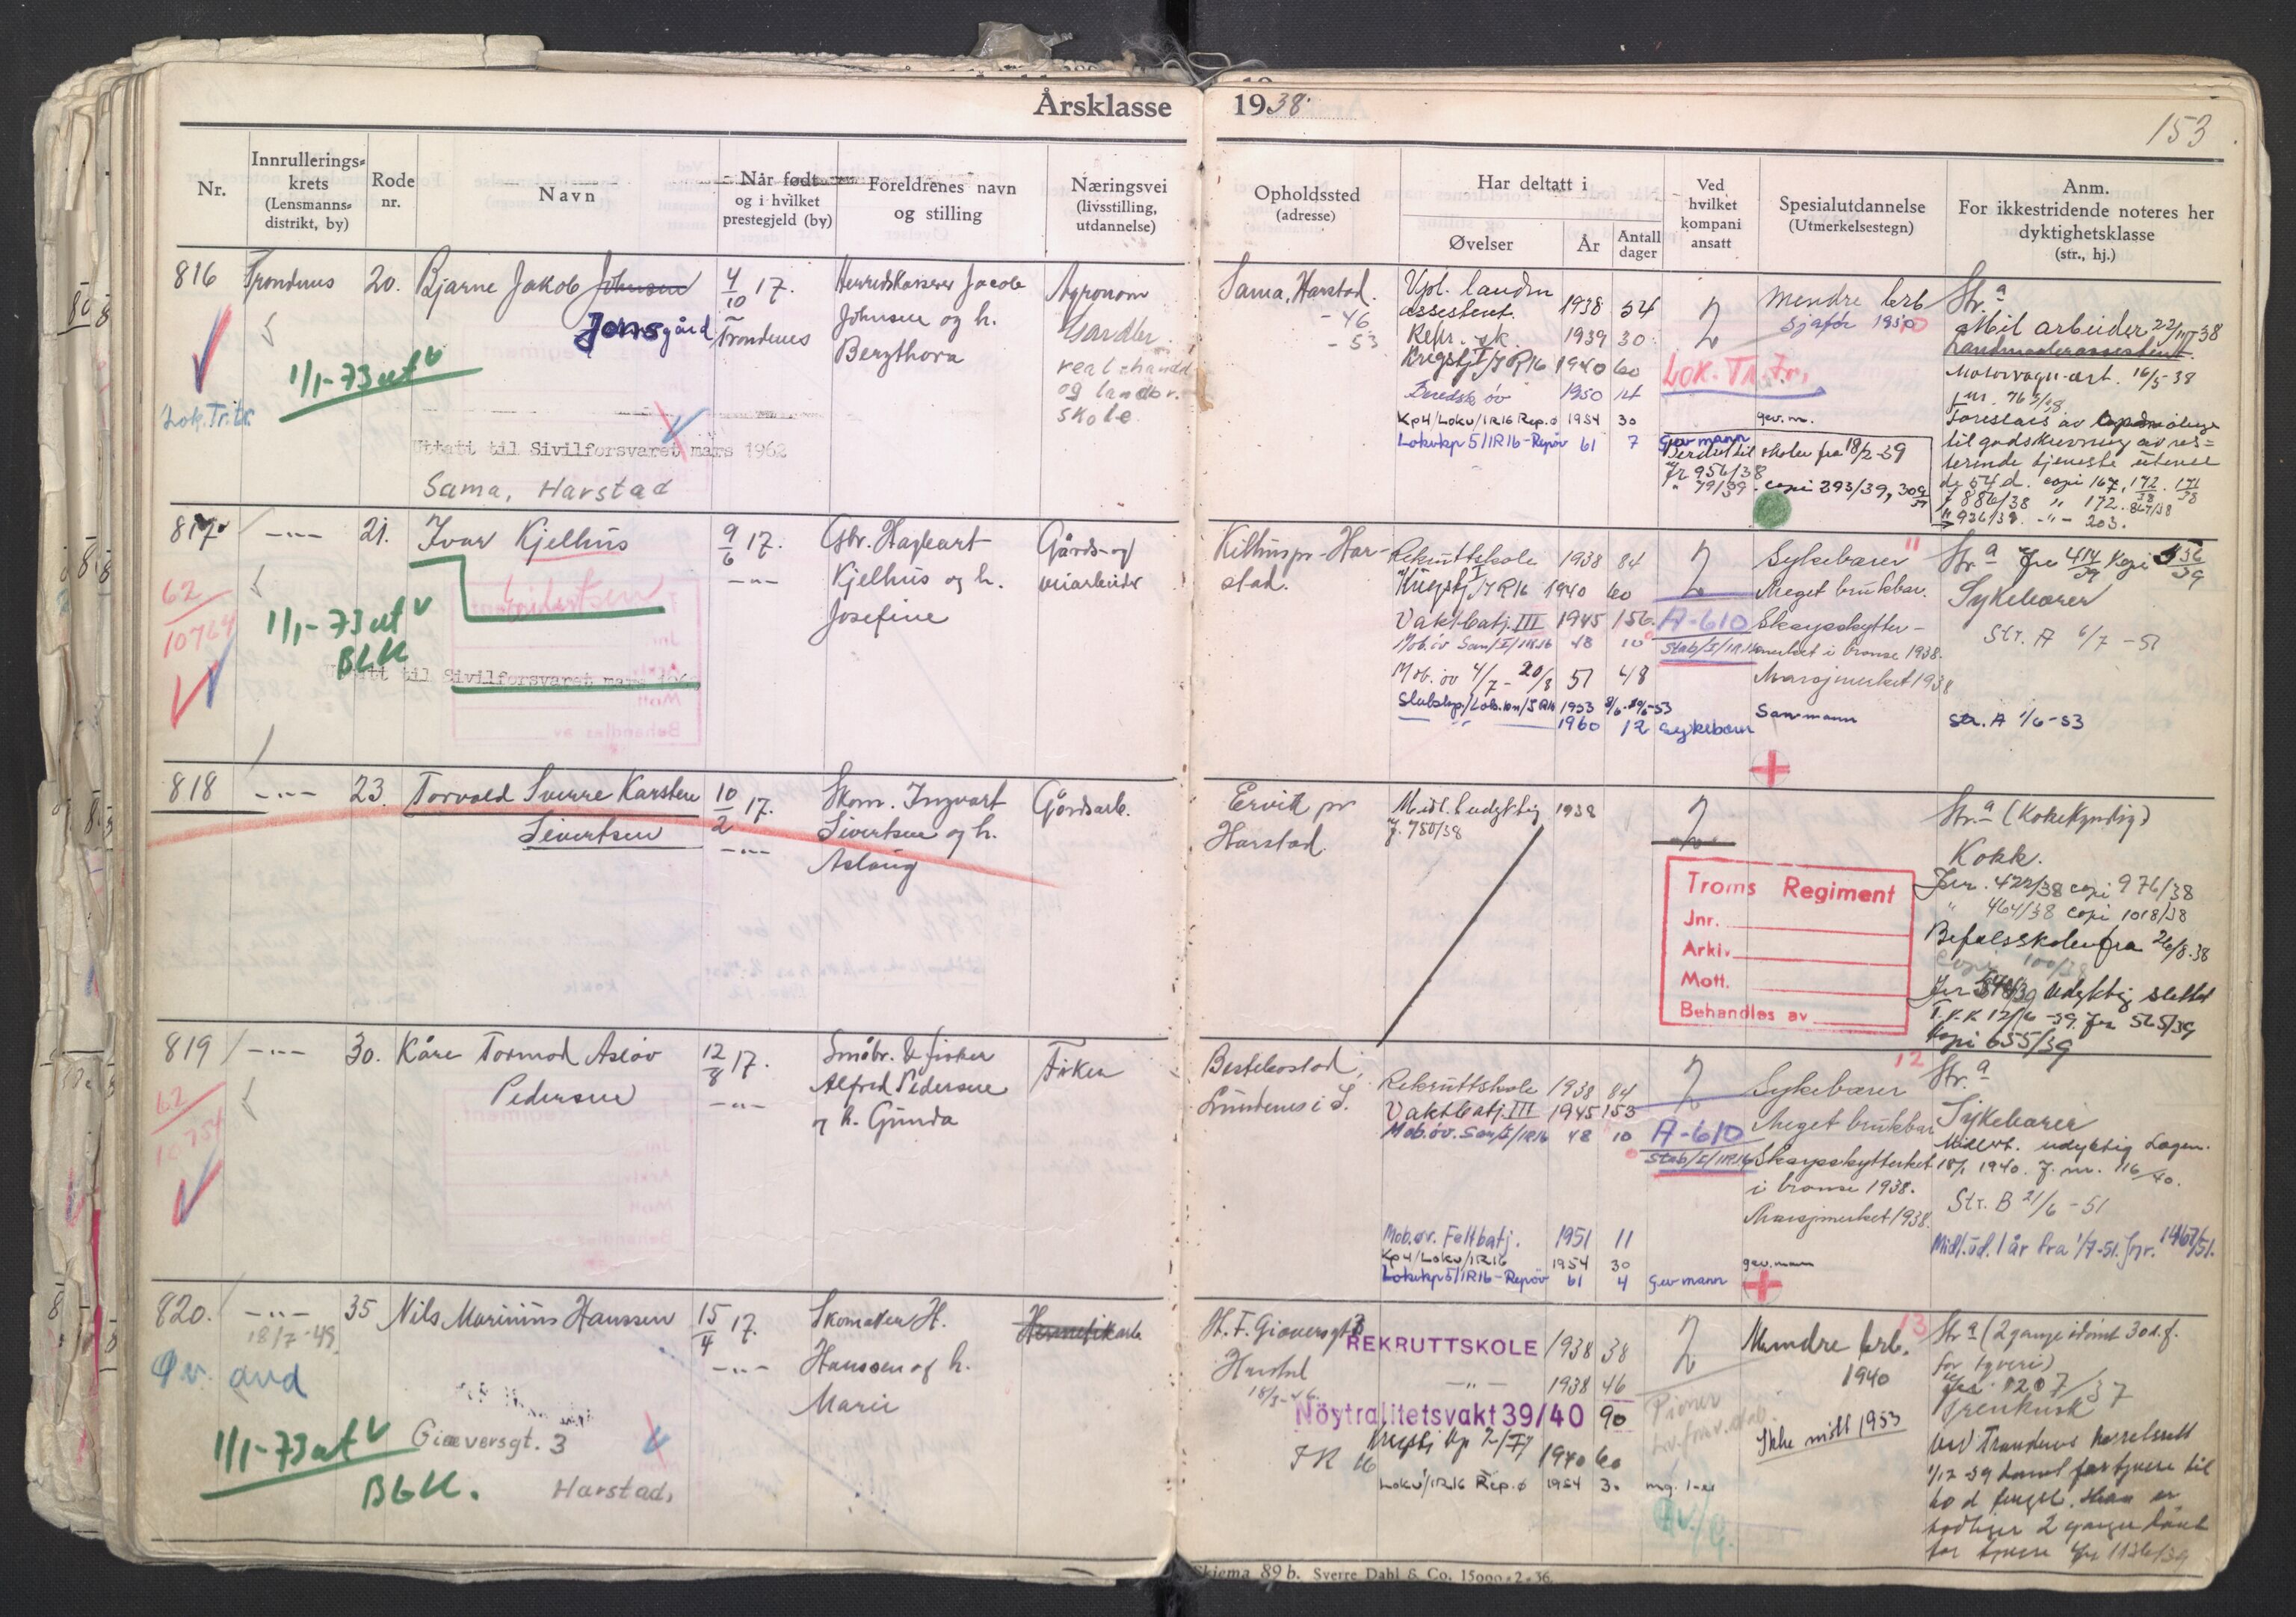 Årsklasse 1938.
153
Nr.
Innrullerings-
krets
(Lensmanns-
distrikt, by)
Rode
nr.
Navn
Når født
og i hvilket
prestegjeld (by)
Foreldrenes navn
og stilling
Næringsvei
(livsstilling,
utdannelse)
Opholdssted
(adresse)
Har deltatt i
Øvelser
År
Antall
dager
Ved
hvilket
kompani
ansatt
Spesialutdannelse
(Utmerkelsestegn)
Anm.
For ikkestridende noteres her
dyktighetsklasse
(str., hj.)
816 Trondenes 20. Bjarne Jakob Johnsen
Jonsgård
4/10 17.
Trondenes
Herredskasserer Jacob
Johnsen og h.
Bergthora
Agronom
Handler.
real-handel
og landbr.
skole
1/1-73 ut
Lok.Tr.tr.
Uttatt til Sivilforsvaret mars 1962
Sama, Harstad
Sama, Harstad.
- 46
- 53
Vpl. landm
assistent. 1938 54
Repr. sk. 1939 30
Krigstj I/IR16 1940 60
Beredsk öv 1950 14
Kp4/Lokv/IR16 Rep.ø 1954 30
Lokvkp5/IR16-Repöv 61 7 Gev mann
2
Lok. Tr.tr.
Mindre brb
Sjafør 1950
gev.m.
skolen fra 18/2-39
Jr 956/38
" 79/39. copi 293/39,
Str. a
Mil arbeider 22/III 38
Landmaalerassistent
Motorvogn-art. 16/5-38
Jnr. 762/38
til godskrivning av res-
terende tjeneste utover
de 54 d. copi 167, 172/38. 171/38
J 886/38 " 172. 867/38
" 926/38. -"- 203.
817 -"- 21. Ivar Kjelhus
9/6 17.
-"-
Gbr. Hagbart
Kjelhus og h.
Josefine
Gårds- og
veiarbeider
62
10764
1/1-73 ut
BLK
Uttatt til Sivilforsvaret mars 1962
Kilhus pr. Har-
stad.
Rekruttskole 1938 84
Krigstj I/IR16 1940 60
Vaktbatj. III 1945 156
Mob.öv San/I/IR16 48 10
Mob. öv 4/7 - 20/8 51 48
1953
1960 12 Sykebærer
2
A-610
Stab/I/IR16
Sykebærer 11
Meget brukbar.
Skarpskytter-
merket i bronse 1938.
Marsjmerket 1938
San-mann
Str. a Jnr 414/39 kopi 536/39
Sykebærer
Str. A 6/7 - 51
Str. A 1/6-53
818 -"- 23. Torvald Sverre Karsten
Sivertsen
10/2 17.
-"-
Skom. Ingvart
Sivertsen og h.
Aslaug
Gårdsarb.
Ervik pr
Harstad.
Midl. udyktig 1938
J. 780/38
2
Troms Regiment
Jnr.
Arkiv.
Mott.
Behandles av
Str. a (Kokekyndig)
Kokk.
Jnr. 422/38 copi 976/38
" 464/38 copi 1018/38
Befalsskolen fra 26/8-38
copi 100/38
Udyktig slettet
T.K.K 12/6-39. Jnr 565/39
Kopi 655/39
819 -"- 30. Kåre Tormod Asløv
Pedersen
12/8 17.
-"-
Småbr. & fisker
Alfred Pedersen
og h. Gunda
Fisker
62
10754
Rekruttskole 1938 84
Vaktbatj. III 1945 153
Mob.öv. San/I/IR16 48 10
Mob.øv. Feltbatj. 1951 11
Kp4/Lokv/IR16 1954 30
Lokvkp5/IR16-Repöv 61 4 Gev mann
2
A-610
Stab/I/IR16
12
Sykebærer
Meget brukbar
Skarpskyttermerket
i bronse 1938.
Marsjmerket 1938.
gev.mann
Str. a
Sykebærer
Midlert. udyktig
18/1 1940. J. nr. 116/40.
Str. B 21/6 - 51
Midl. ud. 1 år fra 1/7-51. Jnr. 1467/51.
820. -"- 35 Nils Marinius Hanssen
18/7-49.
15/4 17.
-"-
Skomaker H.
Hanssen og h.
Marie
Hermetikarb
Øv. avd
1/1-73 ut
BLK.
Giæversgt. 3
Harstad,
H. F. Giæversgt 3
Harstad
18/3-46.
REKRUTTSKOLE 1938 38
-"- 1938 46
Nöytralitetsvakt 39/40 90
Krigstj Kp 2/I
IR 16 1940 60
Lokv/IR16 Rep.ø 1954 30 mg. 1-er
2
Pioner
13
Mindre brb.
1940
Ikke møtt 1953
Str a (2 gange idømt 30 d. f.
for tyveri)
Jnr. 1207/37
Ved Trondenes herredsrett
1/12 39 dømt for tyveri til
60 d fengsel. Han er
tidligere 2 ganger dømt
for tyveri Jnr 1136/39
Skjema 89 b. Sverre Dahl & Co. 15000-2-36.